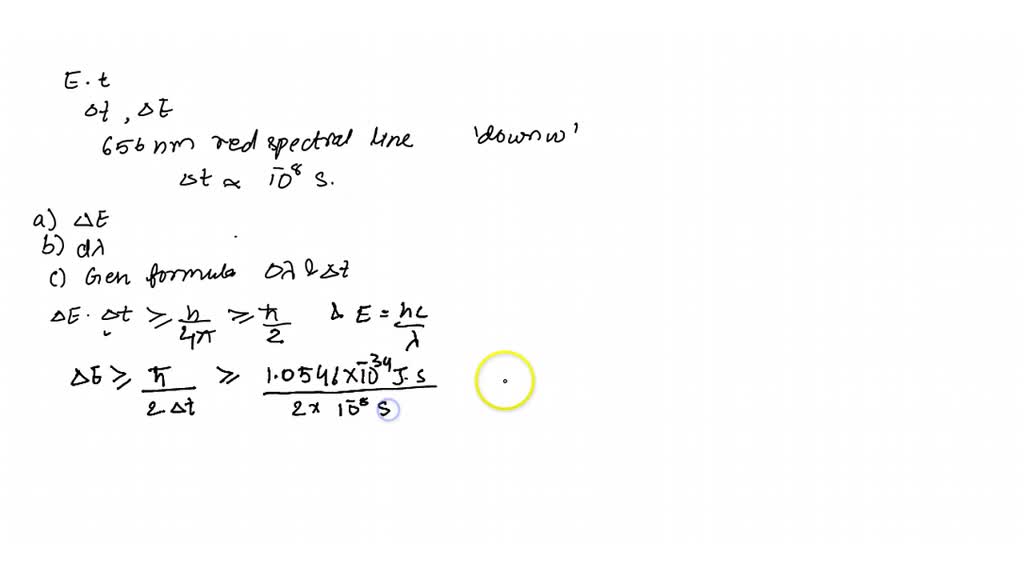 E. t
Δt, ΔE
656 nm red spectral line 'downw'
Δt ∝ 10⁻⁸ s.
a) ΔE
b) dλ
c) Gen formula Δλ & Δt
ΔE. Δt ≥ h/4π ≥ ħ/2 & E = hc/λ
ΔE ≥ ħ/2.Δt ≥ 1.0546×10⁻³⁴ J.s/2× 10⁻⁸ s